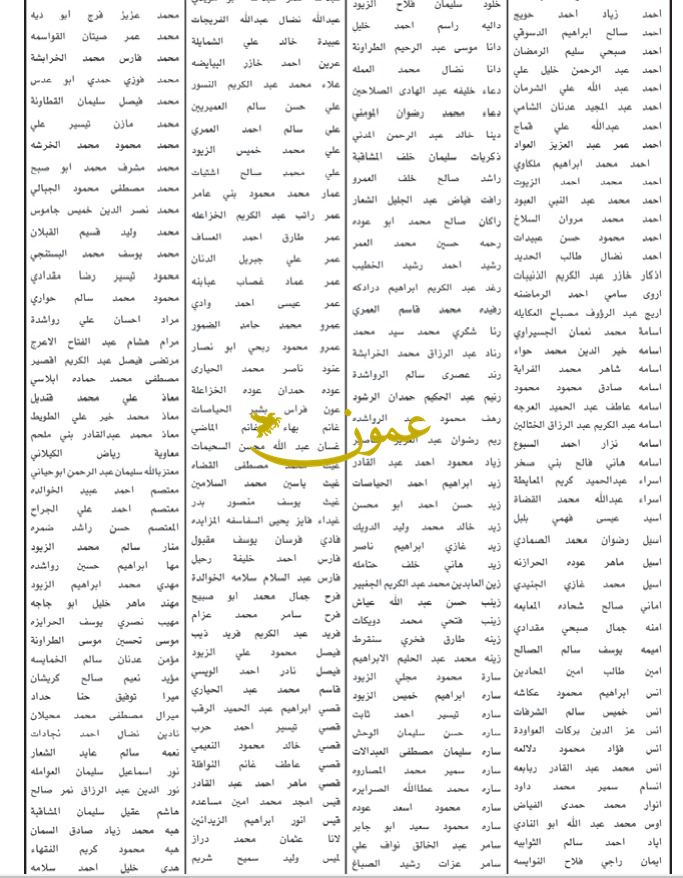 احمد زياد احمد حويج
احمد صالح ابراهيم الدسوقي
احمد صبحي سليم الرمضان
احمد عبد الرحمن خليل علي
احمد عبد الله علي الشرمان
احمد عبد المجيد عدنان الشامي
احمد عبدالله علي قماج
احمد عمر عبد العزيز العواد
احمد محمد ابراهيم ملكاوي
احمد محمد احمد الزيوت
احمد محمد عبد النبي العبود
احمد محمد مروان السلاخ
احمد محمود حسن عبيدات
احمد نضال طالب الحديد
اذكار خازر عبد الكريم الذنيبات
اروى سامي احمد الرماضنه
اريج عبد الرؤوف مصباح العكايله
اسامة محمد نعمان الجسيراوي
اسامه خير الدين محمد حواء
اسامه شاهر محمد القراية
اسامه صادق محمود محمود
اسامه عاطف عبد الحميد العرجه
اسامه عبد الكريم عبد الرزاق الختالين
اسامه نزار احمد السبوع
اسامه هاني فالح بني صخر
اسراء عبدالحميد كريم المعايطة
اسراء عبدالله محمد القضاة
اسيد عيسى فهمي بلبل
اسيل رضوان محمد الصمادي
اسيل ماهر عوده الحرازنه
اسيل محمد غازي الجنيدي
اماني صالح شحاده المعايعه
امنه جمال صبحي مقدادي
اميمه يوسف سالم الصالح
امين طالب امين المحادين
انس ابراهيم محمود عكاشه
انس خميس سالم الشرفات
انس عز الدين بركات العواودة
انس فؤاد محمود دلالعه
انس محمد عبد القادر ربابعه
انسام سمير محمد داود
انوار محمد حمدي الفياض
اوس محمد عبد الله ابو النادي
اياد احمد سالم الثوابيه
ايمان راجي فلاح النوايسه
خلود سليمان فلاح الزيود
داليه راسم احمد خليل
دانا موسى عبد الرحيم الطراونة
دانا نضال محمد العمله
دعاء خليفه عبد الهادى الصلاحين
دعاء محمد رضوان المومني
دينا خالد عبد الرحمن المدني
ذكريات سليمان خلف المشاقبة
راشد صالح خلف العمرو
رافت فياض عبد الجليل الشعار
راكان صالح محمد ابو عوده
رحمه حسين محمد العمر
رشيد احمد رشيد الخطيب
رغد عبد الكريم ابراهيم درادكه
رفيده محمد قاسم العمري
رنا شكري محمد سيد محمد
رناد عبد الرزاق محمد الخرابشة
رند عصرى سالم الرواشدة
رنيم عبد الحكيم حمدان الرشود
رهف محمود عبد الرواشده
ريم رضوان عبد العزيز
زياد محمود احمد عبد القادر
زيد ابراهيم احمد الحياصات
زيد حسن احمد ابو محسن
زيد خالد محمد وليد الدويك
زيد غازي ابراهيم ناصر
زيد هاني خلف حتامله
زين العابدين محمد عبد الكريم الجغبير
زينب حسن عبد الله عياش
زينب فتحي محمد دويكات
زينه طارق فخري سنقرط
زينه محمد عبد الحليم الابراهيم
سارة محمود مجلي الزيود
ساره ابراهيم خميس الزيود
ساره تيسير احمد ثابت
ساره حسن سليمان الوحش
ساره سليمان مصطفى العبدالات
ساره سمير محمد المصاروه
ساره محمد عطاالله الصرايره
ساره محمود اسعد عوده
ساره محمود سعيد ابو جابر
سامر عبد الخالق نواف علي
سامر عزات رشيد الصباغ
عبدالله نضال عبدالله الفريجات
عبيدة خالد علي الشمايلة
عرين احمد خازر البيايضه
علاء محمد عبد الكريم النسور
علي حسن سالم العميريين
علي سالم احمد العمري
علي محمد خميس الزيود
علي محمد صالح اشتيات
عمار محمد محمود بني عامر
عمر راتب عبد الكريم الخزاعله
عمر طارق احمد العساف
عمر علي جبريل الدنان
عمر عماد غصاب عبابنه
عمر عيسى احمد وادي
عمرو محمد حامد الضمور
عمرو محمود ربحي ابو نصار
عنود ناصر محمد الحيارى
عوده حمدان عوده الخزاعلة
عون فراس بشير الحياصات
غانم بهاء غانم الماضي
غسان عبد الله محسن السحيمات
غيث محمد مصطفى القضاه
غيث ياسين محمد السلامين
غيث يوسف منصور بدر
غيداء فايز يحيى السفاسفه المزايده
فادي فرسان يوسف مقبول
فارس احمد خليفة رحيل
فارس عبد السلام سلامه الخوالدة
فرح جمال محمد ابو صبيح
فرح سامر محمد عزام
فريد عبد الكريم فريد ذيب
فيصل محمود علي الزيود
فيصل نادر احمد الويسي
قاسم محمد عبد الحياري
قصي ابراهيم عبد الحميد الرقب
قصي تيسير احمد حرب
قصي خالد محمود النعيمي
قصي عاطف غانم النوافلة
قصي ماهر احمد عبد القادر
قيس امجد محمد امين مساعده
قيس انور ابراهيم الزيدانين
لانا عثمان محمد دراز
لميس وليد سميح شريم
محمد عزيز فرج ابو ديه
محمد عمر صيتان القواسمه
محمد فارس محمد الخرابشة
محمد فوزي حمدي ابو عدس
محمد فيصل سليمان القطاونة
محمد مازن تيسير علي
محمد محمود محمد الخرشه
محمد مشرف محمد ابو صبح
محمد مصطفى محمود الجبالي
محمد نصر الدين خميس جاموس
محمد وليد قسيم القبلان
محمد يوسف محمد البستنجي
محمود تيسير رضا مقدادي
محمود محمد سالم حواري
مراد احسان علي رواشدة
مرام هشام عبد الفتاح الاعرج
مرتضى فيصل عبد الكريم اقصير
مصطفى محمد حماده ابلاسي
معاذ علي محمد قنديل
معاذ محمد خير علي الطويط
معاذ محمد عبدالقادر بني ملحم
معاوية رياض الكيلاني
معتز بالله سليمان عبد الرحمن ابو حياني
معتصم احمد عبيد الخوالده
معتصم احمد علي الجراح
المعتصم حسن راشد ضمره
منار سالم محمد الزيود
مها ابراهيم حسين رواشده
مهدي محمد ابراهيم الزيود
مهند ماهر خليل ابو جاجه
مهيب نصري يوسف الحرايزه
موسى تحسين موسى الطراونة
مؤمن عدنان سالم الخمايسه
مؤيد نعيم صالح كريشان
ميرا توفيق حنا حداد
ميرال مصطفى محمد محيلان
نادين نضال احمد نجادات
نعمه سالم عايد الشعار
نور اسماعيل سليمان العوامله
نور الدين عبد الرزاق نمر صالح
هاشم عقيل سليمان المشاقبة
هبه محمد زياد صادق السمان
هبه محمود كريم الفقهاء
هدى خليل احمد سلامه
عمون